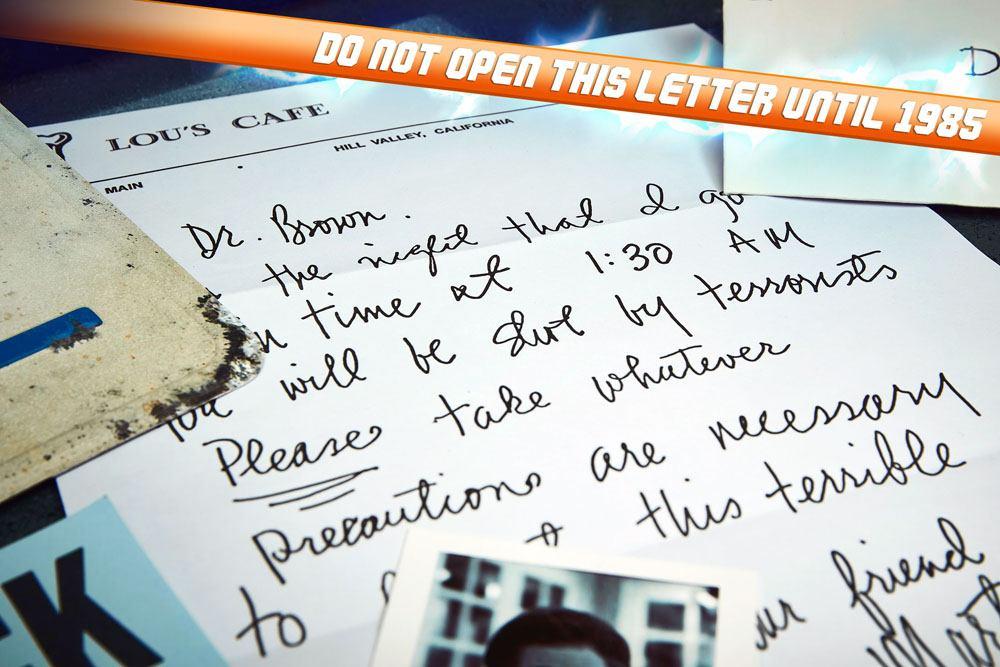 DO NOT OPEN THIS LETTER UNTIL 1985
LOU'S CAFE
HILL VALLEY, CALIFORNIA
MAIN
Dr. Brown.
the night that I go
time at 1:30 AM
You will be shot by terrorists
Please take whatever
precautions are necessary
to this terrible
friend